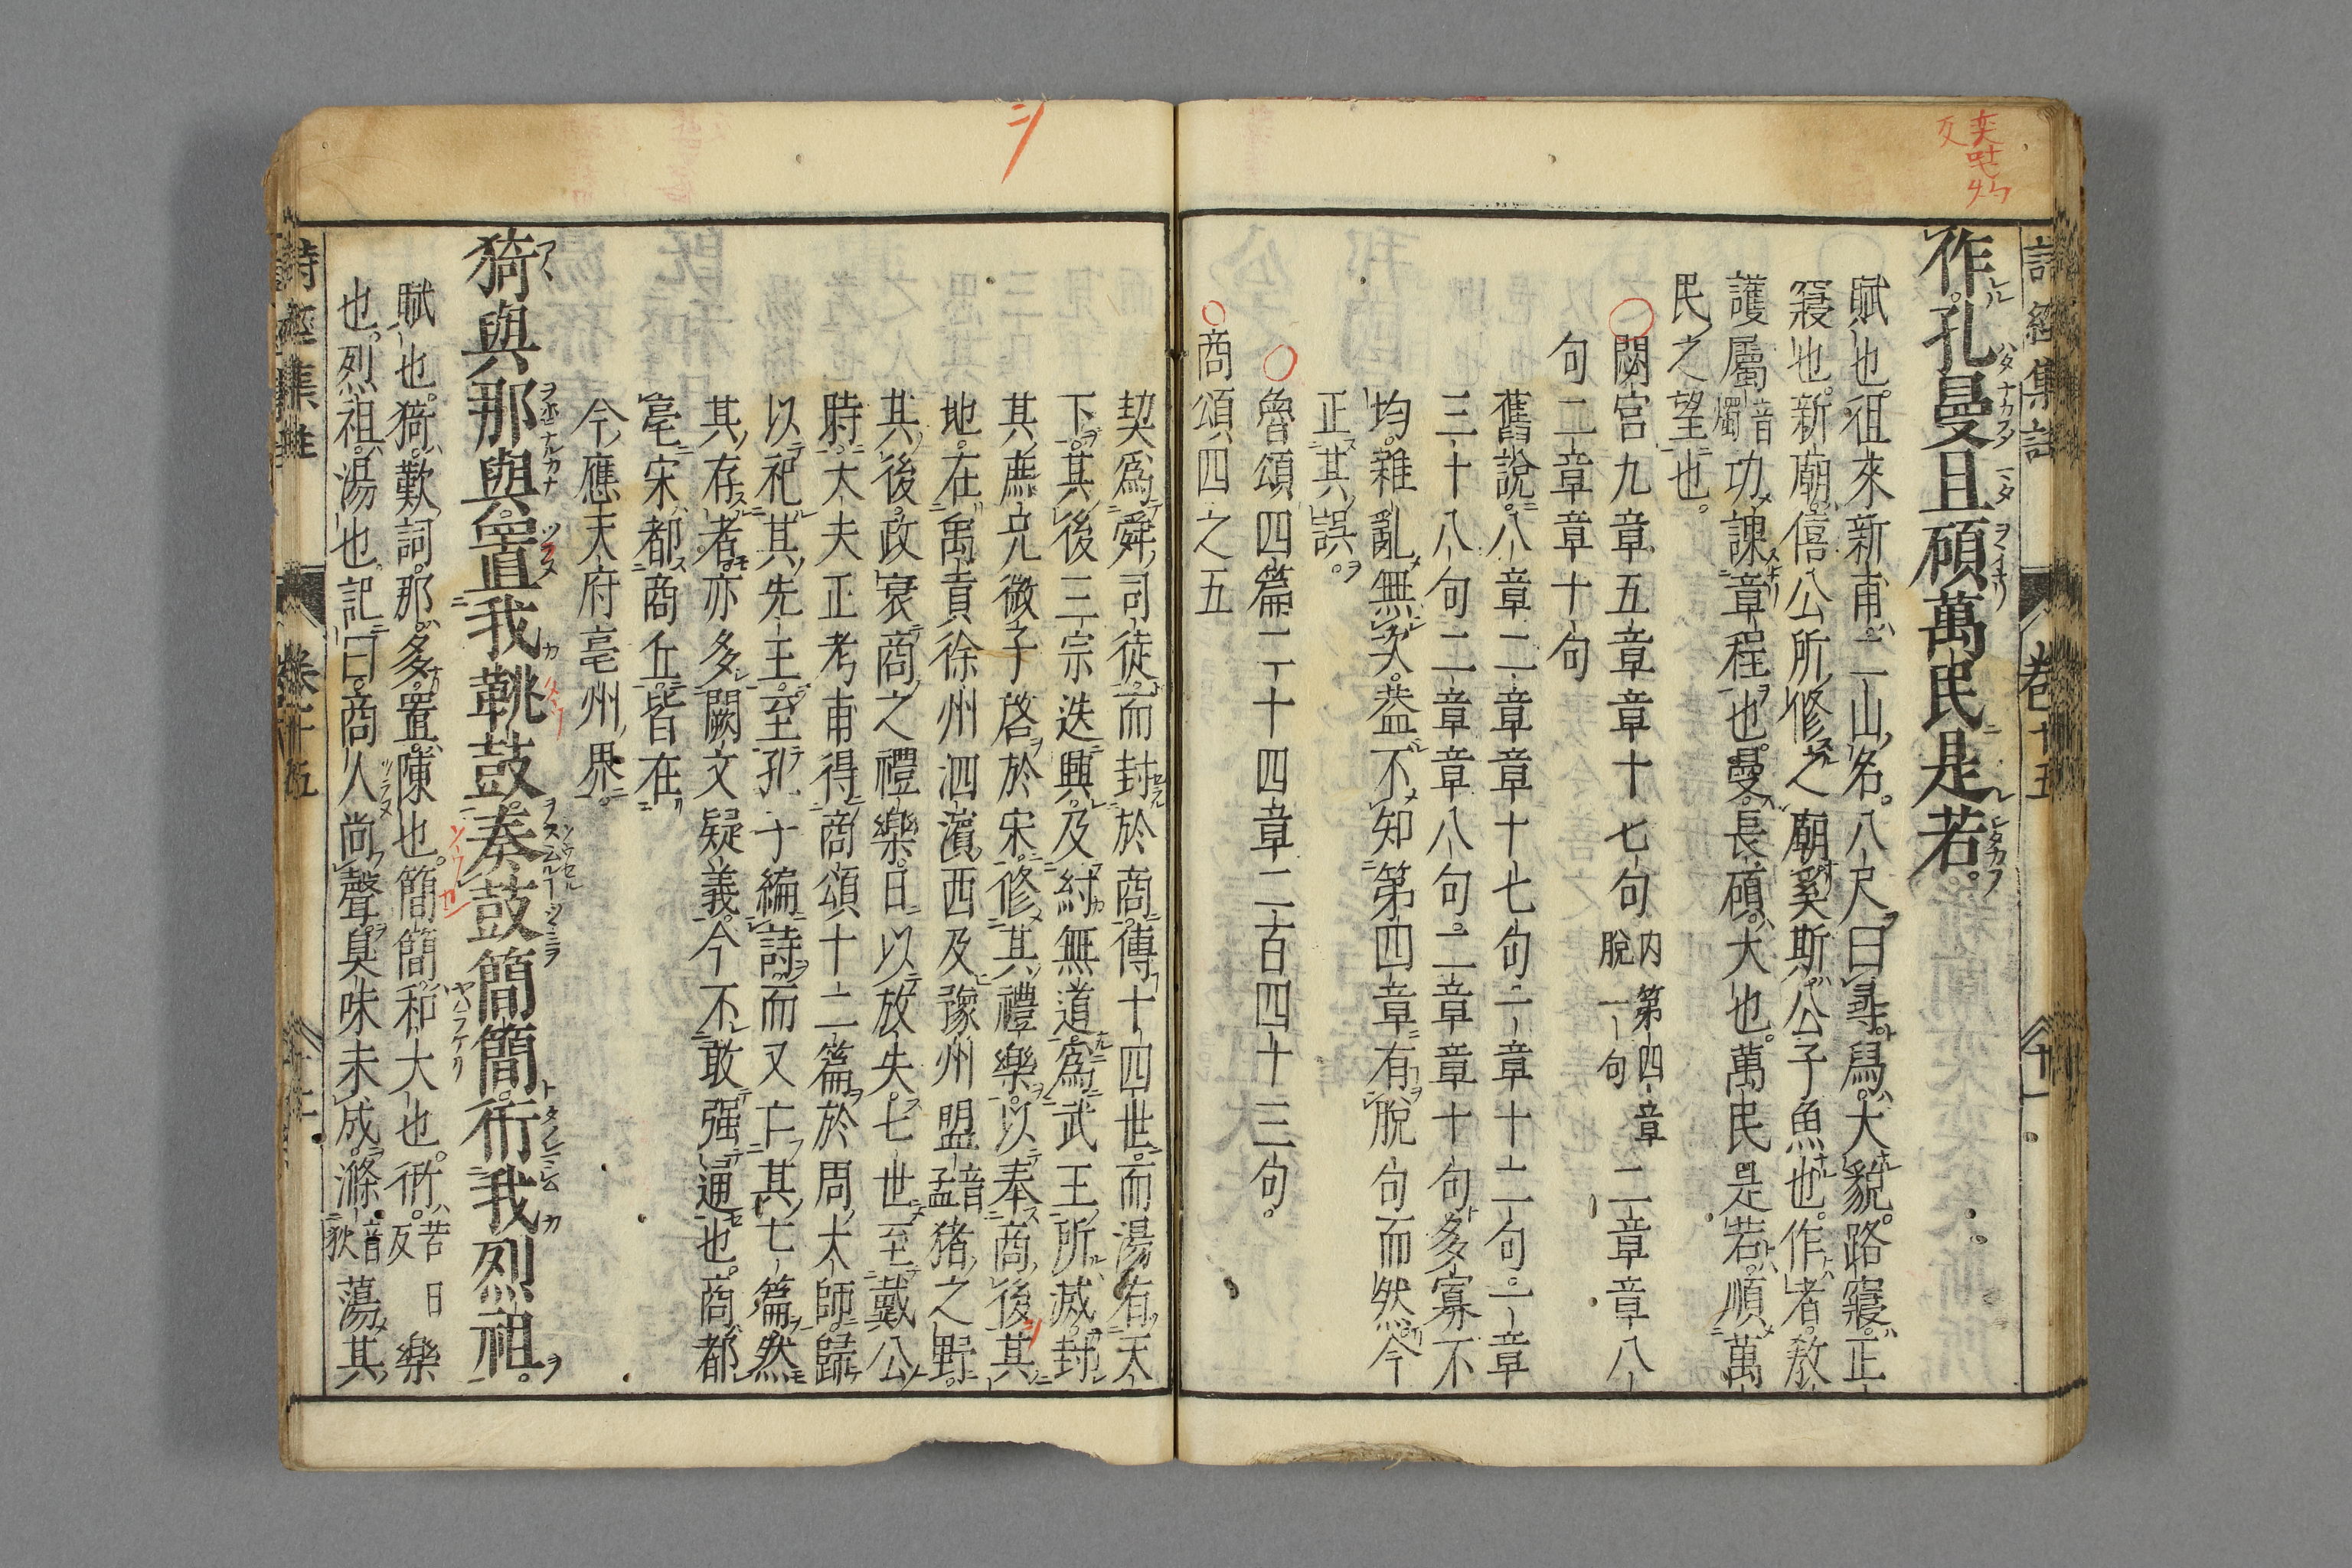 詩經集註 卷十五 十一
作。孔曼且碩。萬民是若。
賦也。徂來新甫。二山名。八尺曰尋。舄。大貌。路寢。正
寢也。新廟。僖公所修之廟。奚斯。公子魚也。作者。敎
護屬音燭功課章程也。曼。長。碩。大也。萬民是若。順萬
民之望也。
閟宮九章五章章十七句內第四章脫一句二章章八
句二章章十句
舊說。八章二章章十七句一章十二句。一章
三十八句二章章八句。二章章十句。多寡不
均。雜亂無次。葢不知第四章有脫句而然。今
正其誤。
魯頌四篇二十四章二百四十三句。
商頌四之五
契爲舜司徒。而封於商。傳十四世。而湯有天
下。其後三宗迭興。及紂無道。爲武王所滅。封
其庶兄微子啓於宋。修其禮樂。以奉商後。其
地在禹貢徐州泗濵西及豫州盟音孟猪之野。
其後政衰。商之禮樂。日以放失。七世至戴公
時。大夫正考甫得商頌十二篇於周大師。歸
以祀其先王。至孔子編詩。而又亡其七篇。然
其存者亦多闕文疑義。今不敢强通也。商都
亳。宋都商丘。皆在
今應天府亳州界。
猗與那與。置我鞉鼓。奏鼓簡簡。衎我烈祖。
賦也。猗。歎詞。那。多。置。陳也。簡簡。和大也。衎。苦旦反樂
也。烈祖。湯也。記曰。商人尚聲。臭味未成。滌音狄蕩其
詩經集註 卷十五